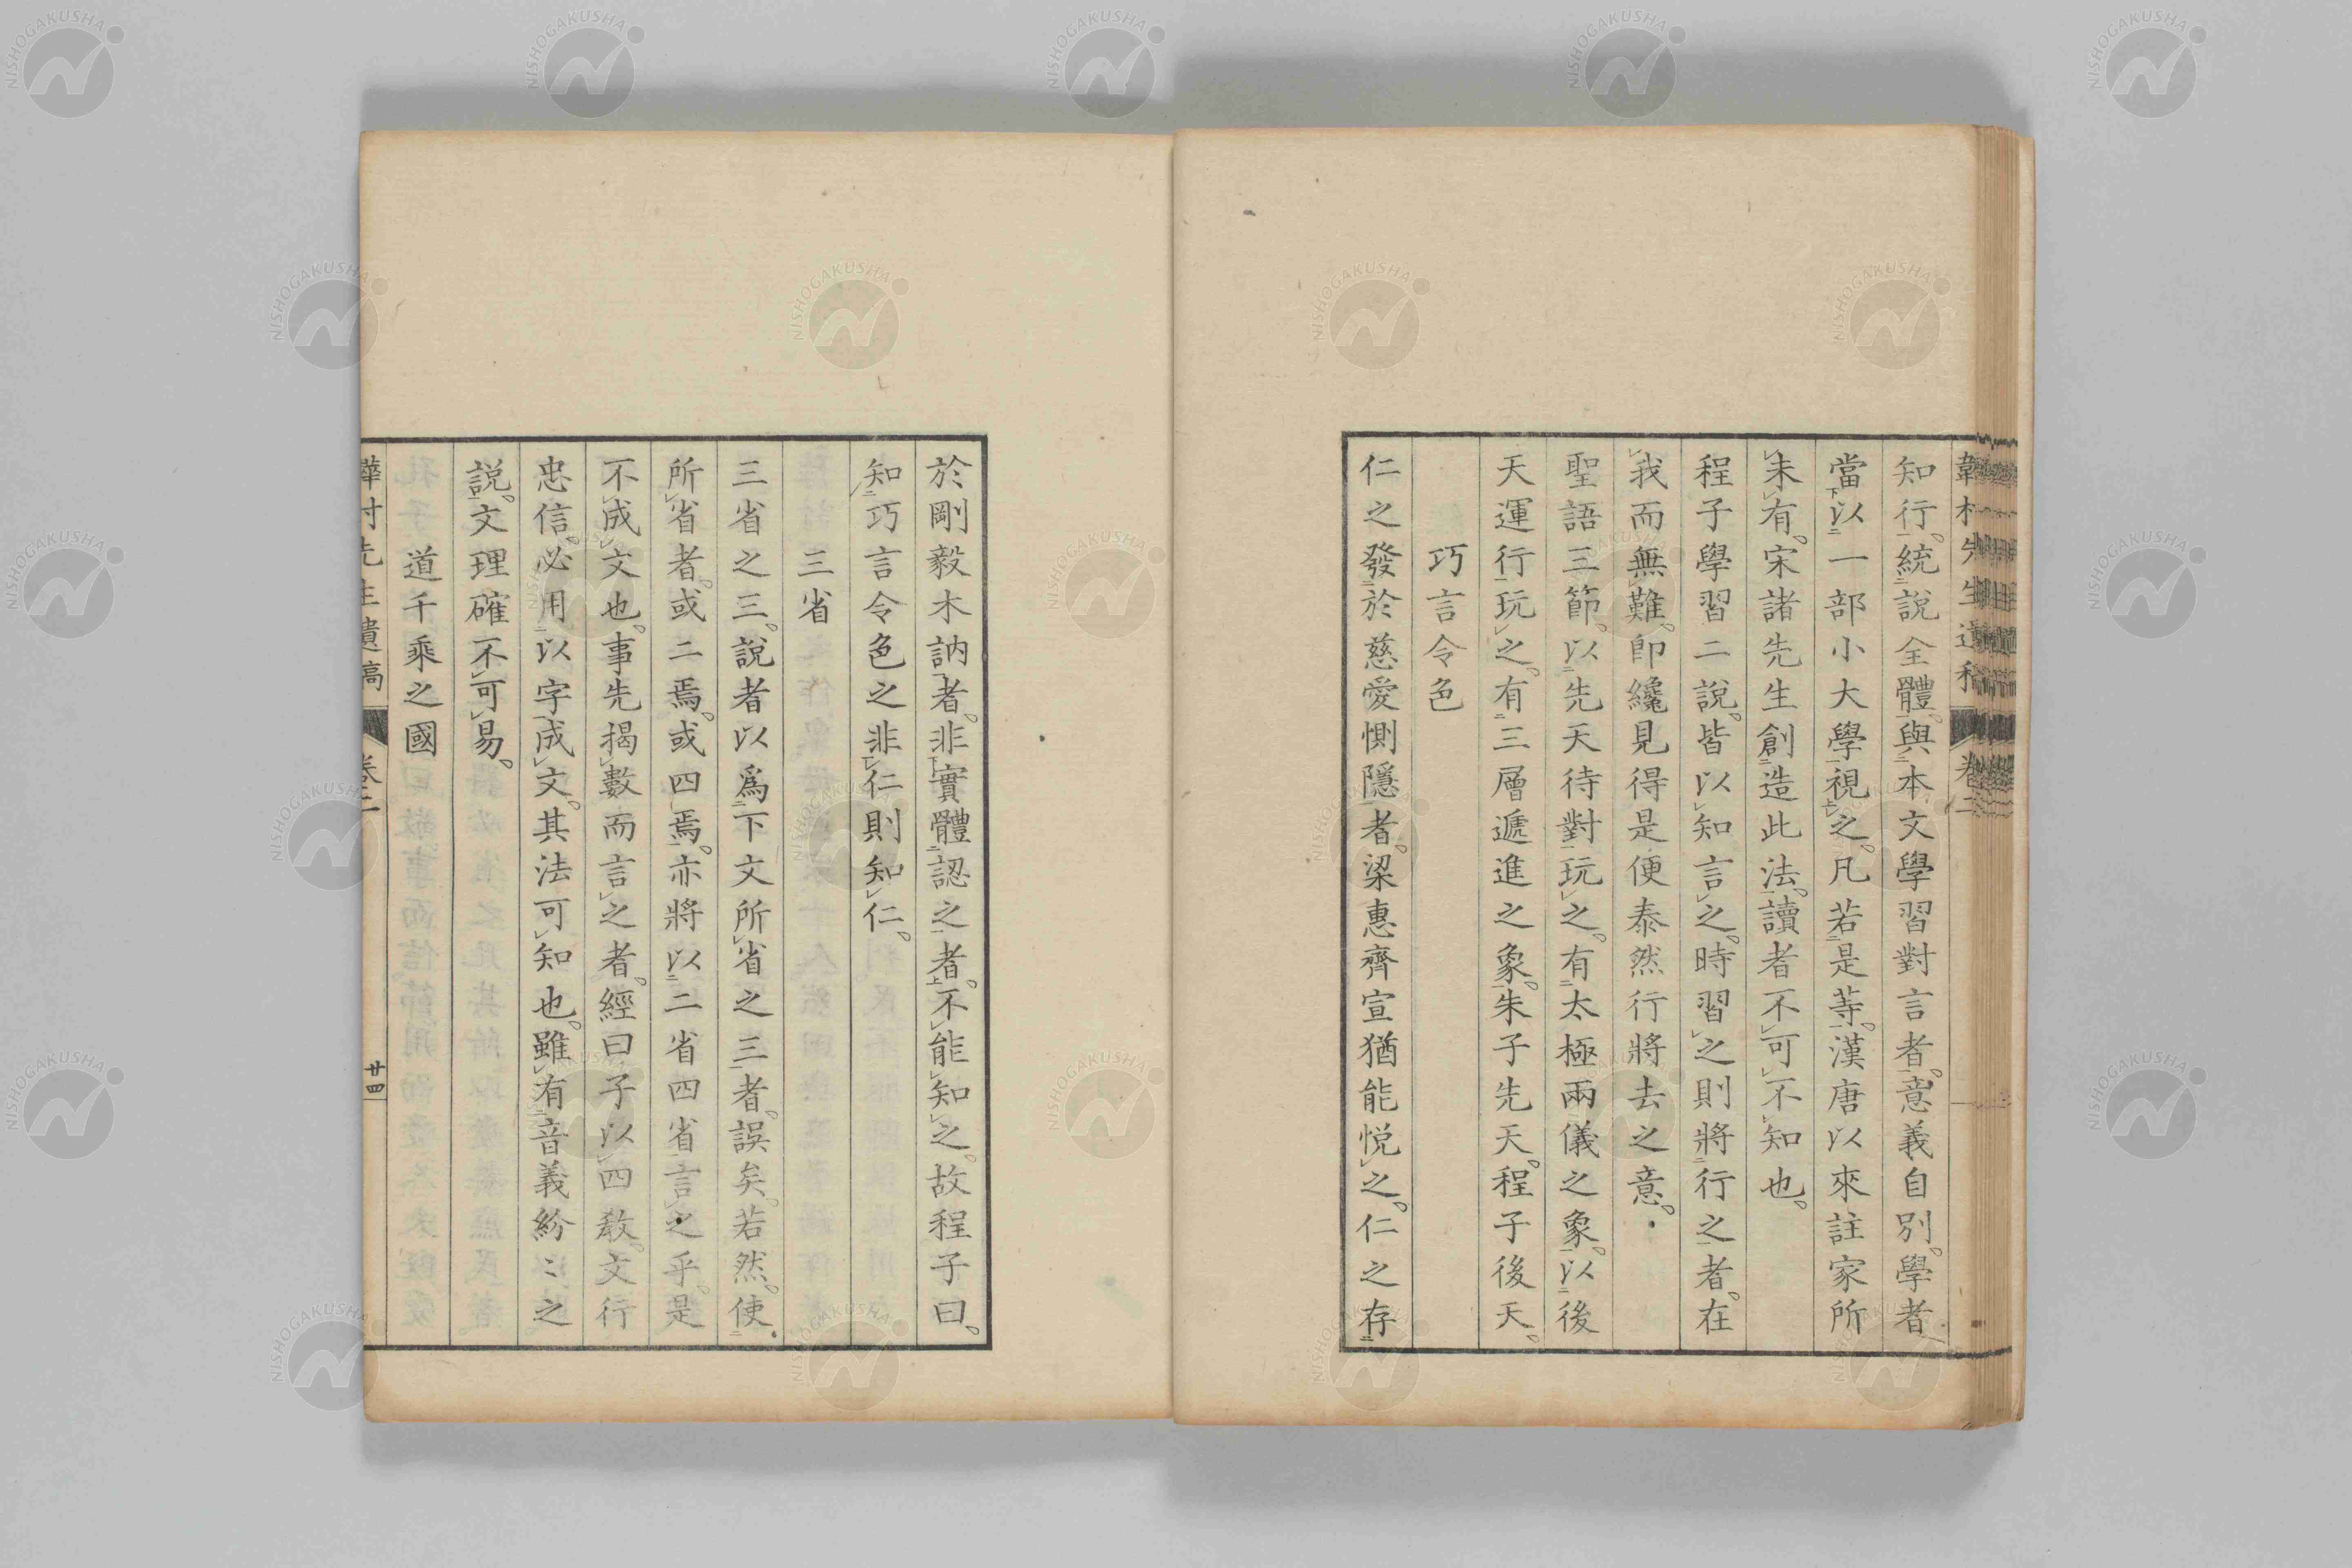 知行。統說全體。與本文學習對言者。意義自別。學者
當以一部小大學視之。凡若是等。漢唐以來註家所
未有。宋諸先生創造此法。讀者不可不知也。
程子學習二說。皆以知言之。時習之則將行之者。在
我而無難。卽纔見得是便泰然行將去之意。
聖語三節。以先天待對玩之。有太極兩儀之象。以後
天運行玩之。有三層遞進之象。朱子先天。程子後天。
巧言令色
仁之發於慈愛惻隱者。梁惠齊宣猶能悅之。仁之存
於剛毅木訥者。非實體認之者。不能知之。故程子曰。
知巧言令色之非仁則知仁。
三省
三省之三。說者以爲下文所省之三者。誤矣。若然。使
所省者。或二焉。或四焉。亦將以二省四省言之乎。是
不成文也。事先揭數而言之者。經曰子以四敎。文行
忠信。必用以字成文。其法可知也。雖有音義紛〻之
說。文理確不可易。
道千乘之國
卷二
廿四
NISHOGAKUSHA